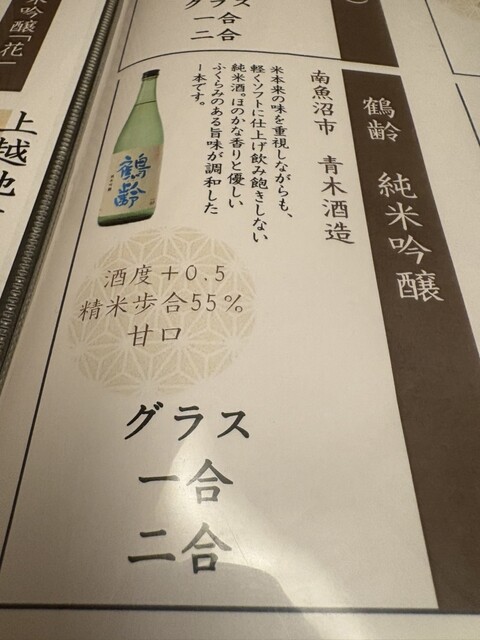 グラス
一合
二合
米吟醸「花」
上越地
鶴齢 純米吟醸
南魚沼市 青木酒造
米本来の味を重視しながらも、
軽くソフトに仕上げ飲み飽きしない
純米酒。ほのかな香りと優しい
ふくらみのある旨味が調和した
一本です。
鶴齢
酒度+0.5
精米歩合55%
甘口
グラス
一合
二合